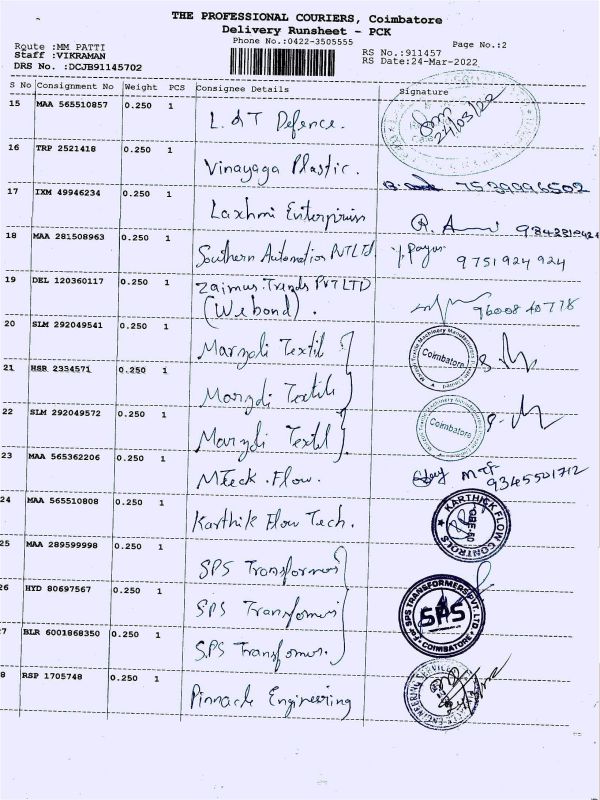 THE PROFESSIONAL COURIERS, Coimbatore
Delivery Runsheet - PCK
Phone No.:0422-3505555
Page No.:2
Route :MM PATTI
Staff :VIKRAMAN
DRS No. :DCJB91145702
RS No.:911457
RS Date:24-Mar-2022
S No Consignment No Weight PCS Consignee Details Signature
15 MAA 565510857 0.250 1 L & T Defence. 24/03/22
16 TRP 2521418 0.250 1 Vinayaga Plastic.
17 IXM 49946234 0.250 1 Laxhmi Enterprises
18 MAA 281508963 0.250 1 Southern Automation PVT LTD 9751924924
19 DEL 120360117 0.250 1 Zaimus Trends PVT LTD
(Webond).
96008 40778
20 SLM 292049541 0.250 1 Textil Coimbatore
21 HSR 2334571 0.250 1 Textile
22 SLM 292049572 0.250 1 Textil Coimbatore
23 MAA 565362206 0.250 1 Mteck. Flow. 9345501712
24 MAA 565510808 0.250 1 Karthik Flow Tech. KARTHICK FLOW CONTROLS
25 MAA 289599998 0.250 1 SPS Transformers
26 HYD 80697567 0.250 1 SPS Transformers For SPS TRANSFORMERS PVT. LTD. SPS COIMBATORE
7 BLR 6001868350 0.250 1 S.P.S Transformers.
8 RSP 1705748 0.250 1 Pinnacle Engineering